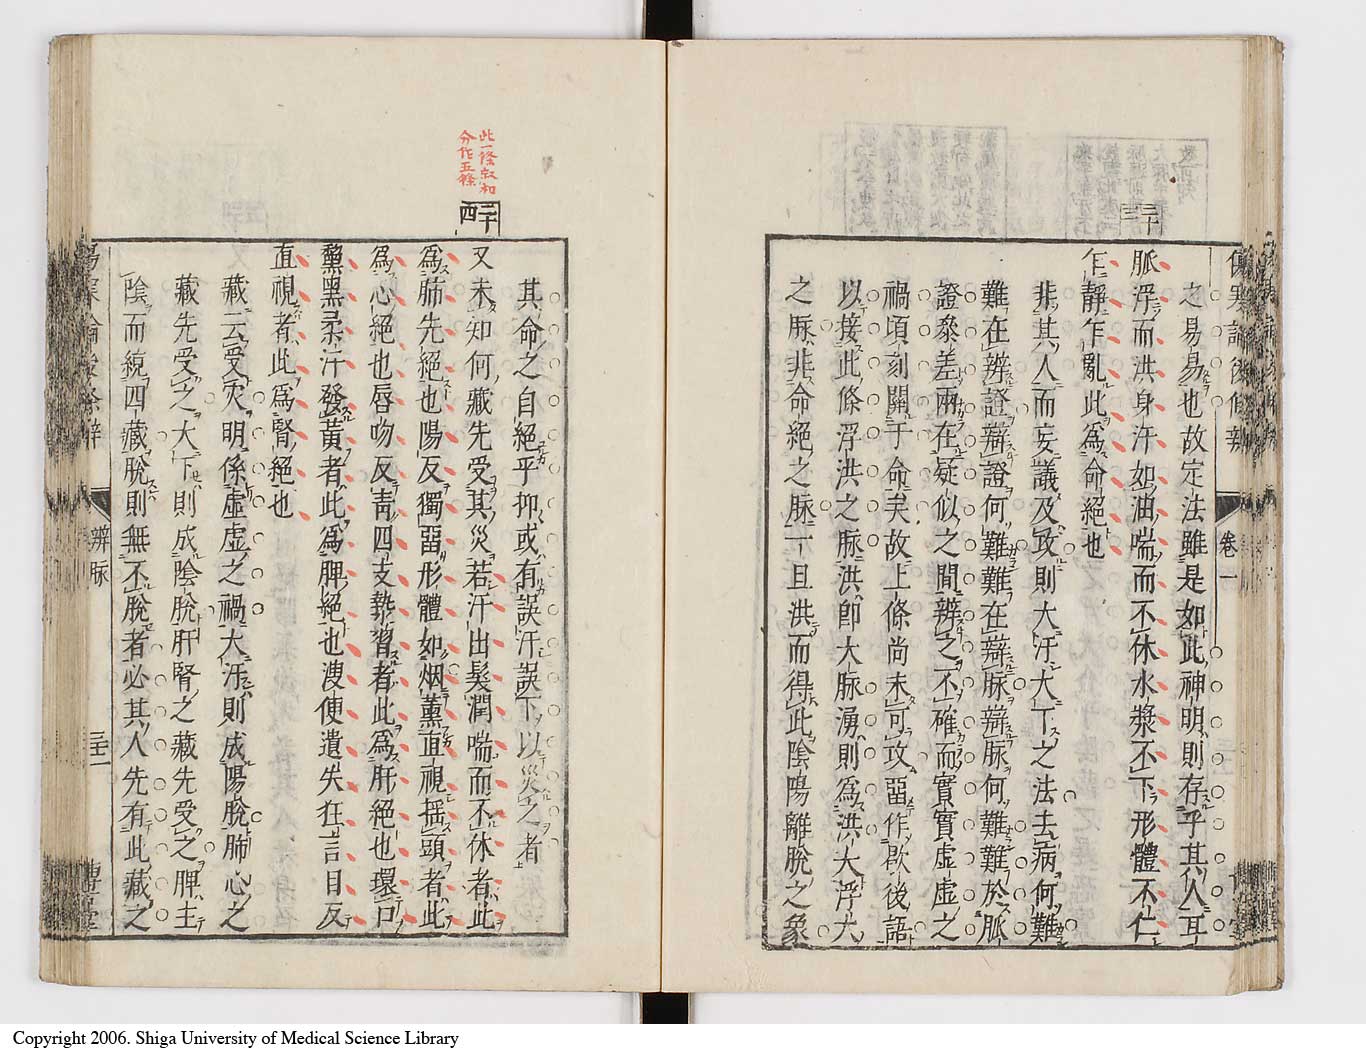 傷寒論後條辨
卷一
二十三
之易易也故定法雖是如此神明則存乎其人耳
脈浮而洪身汗如油喘而不休水漿不下形體不仁
乍靜乍亂此爲命絕也
非其人而妄議及攻則大汗大下之法去病何難
難在辨證辯證何難難在辯脈辯脈何難難於脈
證參差兩在疑似之間辨之不確而實實虛虛之
禍頃刻關于命矣故上條尚未可攻畱作歇後語
以接此條浮洪之脈洪卽大脈湧則爲洪大浮大
之脈非命絕之脈一旦洪而得此陰陽離脫之象
此一條叔和
分作五條
二十四
其命之自絕乎抑或有誤汗誤下以災之者
又未知何藏先受其災若汗出髮潤喘而不休者此
爲肺先絕也陽反獨畱形體如烟薰直視搖頭者此
爲心絕也唇吻反青四支漐習者此爲肝絕也環口
黧黑柔汗發黃者此爲脾絕也溲便遺失狂言目反
直視者此爲腎絕也
藏云受災明係虛虛之禍大汗則成陽脫肺心之
藏先受之大下則成陰脫肝腎之藏先受之脾主
陰而統四藏脫則無不脫者必其人先有此藏之
傷寒論後條辨
辨脈
Copyright 2006. Shiga University of Medical Science Library